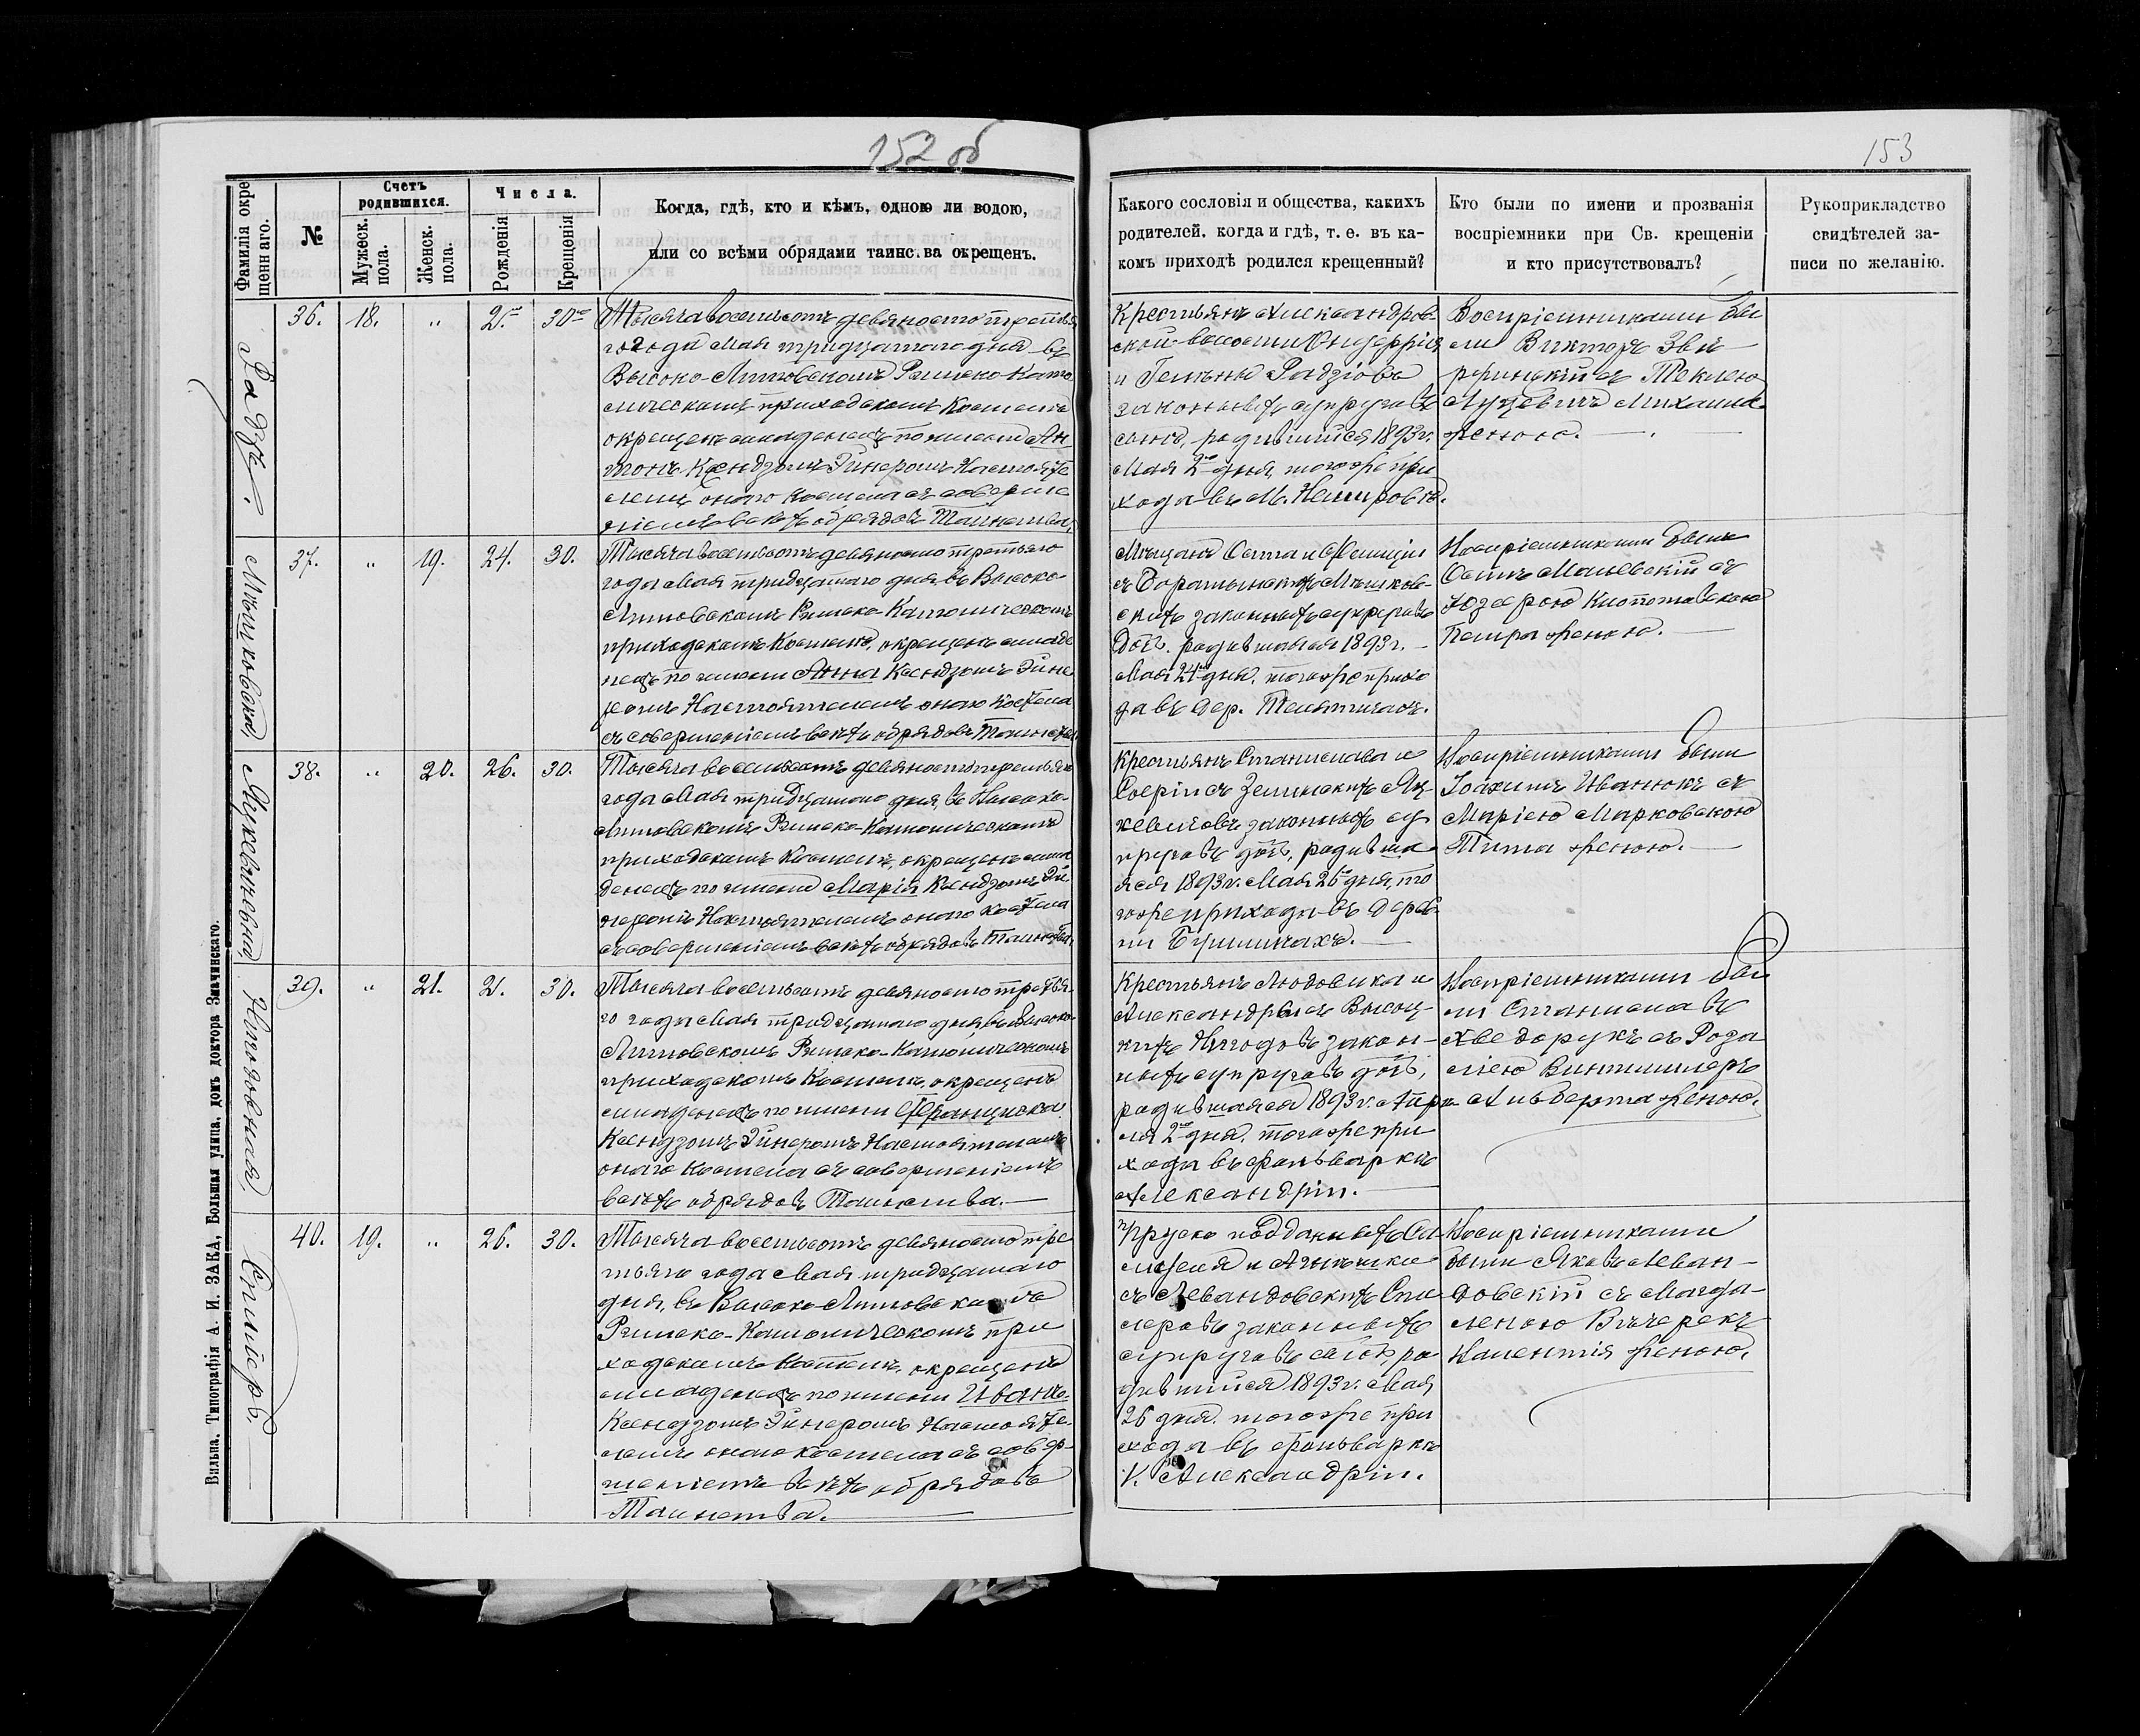 152 об
153
Фамилія окре
щеннаго.
№
Счетъ
родившихся.
Мужеск.
пола.
Женск.
пола.
Числа.
Рожденія
Крещенія
Когда, гдѣ, кто и кѣмъ, одною ли водою,
или со всѣми обрядами таинства окрещенъ.
Какого сословія и общества, какихъ
родителей, когда и гдѣ, т. е. въ ка-
комъ приходѣ родился крещенный?
Кто были по имени и прозванія
воспріемники при Св. крещеніи
и кто присутствовалъ?
Рукоприкладство
свидѣтелей за-
писи по желанію.
36. 18. „ 2го 30го
Тысяча восемьсотъ девяносто третья
го года Мая тридцатаго дня въ
Высоко-Литовскомъ Римско-Като
лическомъ приходскомъ Костелѣ
окрещенъ младенецъ по имени Ан
тонъ Ксендзомъ Эйнеромъ Настояте
лемъ оного Костела съ соверше
ніемъ всѣхъ обрядовъ Таинства.
Крестьянъ Александров
ской волости Онуфрія
и Гелены Радзіовъ
законныхъ супруговъ
сынъ, родившійся 1893 г.
Мая 2го дня, того же при
хода въ М. Немировѣ.
Воспріемниками бы
ли Викторъ
съ Теклею
Михаила
женою.
37. „ 19. 24. 30.
Мѣшковская
Тысяча восемьсотъ девяносто третьяго
года Мая тридцатаго дня въ Высоко-
Литовскомъ Римско-Католическомъ
приходскомъ Костелѣ, окрещенъ младе
нецъ по имени Анна Ксендзомъ Эйне
ромъ Настоятелемъ оного Костела
съ совершеніемъ всѣхъ обрядовъ Таинства.
Мѣщанъ Осипа и Фелиціи
съ Мѣшков-
скихъ законныхъ супруговъ
дочь, родившаяся 1893 г.
Мая 24го дня, того же прихо
да въ дер.
Воспріемниками были
Осипъ Малевскій съ
Юзефою
Петра женою.
38. „ 20. 26. 30.
Яцкевичевна
Тысяча восемьсотъ девяносто третьяго
года Мая тридцатаго дня, въ Высоко-
Литовскомъ Римско-Католическомъ
приходскомъ Костелѣ, окрещенъ мла
денецъ по имени Марія Ксендзомъ Эй
неромъ Настоятелемъ оного Костела
съ совершеніемъ всѣхъ обрядовъ Таинства.
Крестьянъ Станислава и
Софіи съ Яц-
кевичовъ законныхъ су
пруговъ дочь, родивша
яся 1893 г. Мая 26го дня, то
го же прихода въ дерев
ни
Воспріемниками были
Іоахимъ Иванюкъ съ
Маріею Марковскою
Тита женою.
39. „ 21. 2. 30.
Тысяча восемьсотъ девяносто третья
го года Мая тридцатаго дня въ Высоко-
Литовскомъ Римско-Католическомъ
приходскомъ Костелѣ, окрещенъ
младенецъ по имени Францишка
Ксендзомъ Эйнеромъ Настоятелемъ
оного Костела съ совершеніемъ
всѣхъ обрядовъ Таинства.
Крестьянъ Людовика и
Александры съ Высоц-
кихъ закон-
ныхъ супруговъ дочь,
родившаяся 1893 г. Апрѣ
ля 2го дня, того же при
хода въ фольваркѣ
Александріи.
Воспріемниками бы
ли Станиславъ
Хведорукъ съ Роза
ліею
Альберта женою.
40. 19. „ 26. 30.
Тысяча восемьсотъ девяносто тре
тьяго года Мая тридцатаго
дня, въ Высоко-Литовскомъ
Римско-Католическомъ при
ходскомъ Костелѣ, окрещенъ
младенецъ по имени Иванъ
Ксендзомъ Эйнеромъ Настояте
лемъ оного Костела съ совер-
шеніемъ всѣхъ обрядовъ
Таинства.
Прусско подданныхъ
съ Левандовскихъ
законныхъ
супруговъ сынъ, ро
дившійся 1893 г. Мая
26 дня, того же при
хода въ фольваркѣ
К. Александріи.
Воспріемниками
были Яковъ Леван-
довскій съ Магда-
леною
женою.
Вильна. Типографія А. И. ЗАКА, Большая улица, домъ доктора Значинскаго.